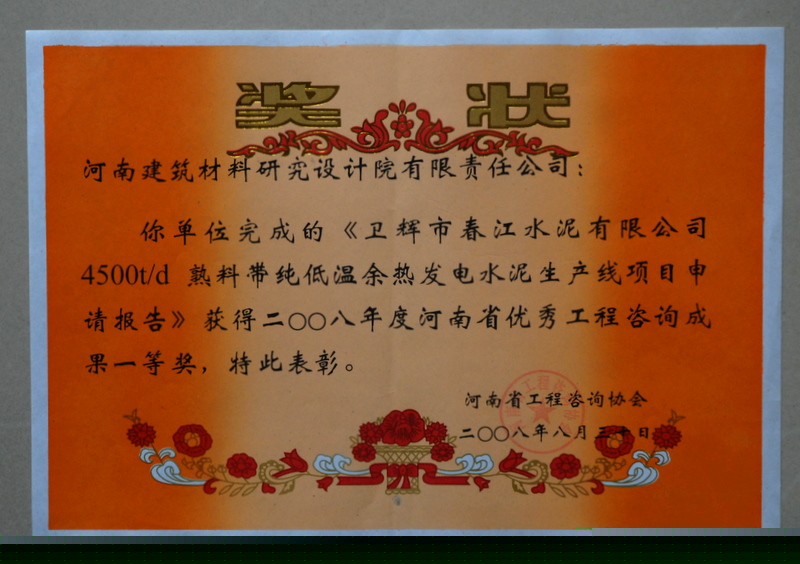 奖状
河南建筑材料研究设计院有限责任公司：
你单位完成的《卫辉市春江水泥有限公司
4500t/d 熟料带纯低温余热发电水泥生产线项目申
请报告》获得二〇〇八年度河南省优秀工程咨询成
果一等奖，特此表彰。
河南省工程咨询协会
二〇〇八年八月三十日